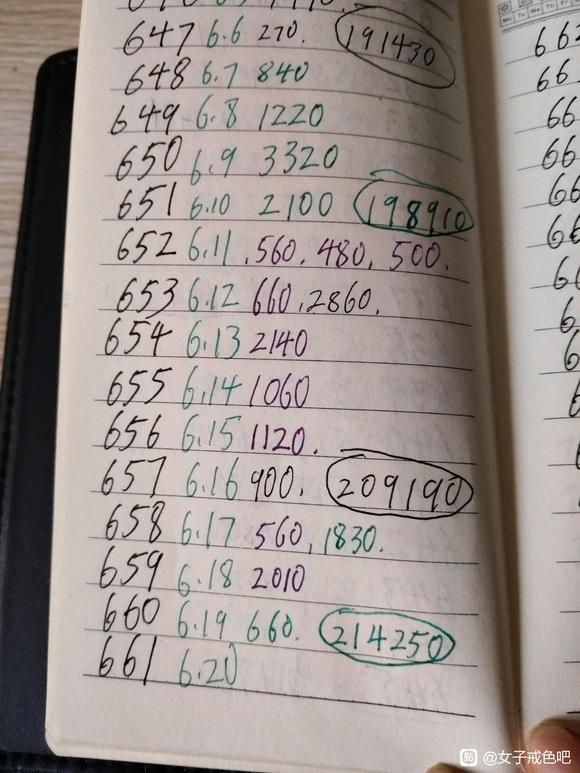 647 6.6 270. 191430
648 6.7 840
649 6.8 1220
650 6.9 3320
651 6.10 2100 198910
652 6.11 .560. 480. 500.
653 6.12 660.2860.
654 6.13 2140
655 6.14 1060
656 6.15 1120.
657 6.16 900. 209190
658 6.17 560, 1830.
659 6.18 2010
660 6.19 660. 214250
661 6.20
贴 @女子戒色吧